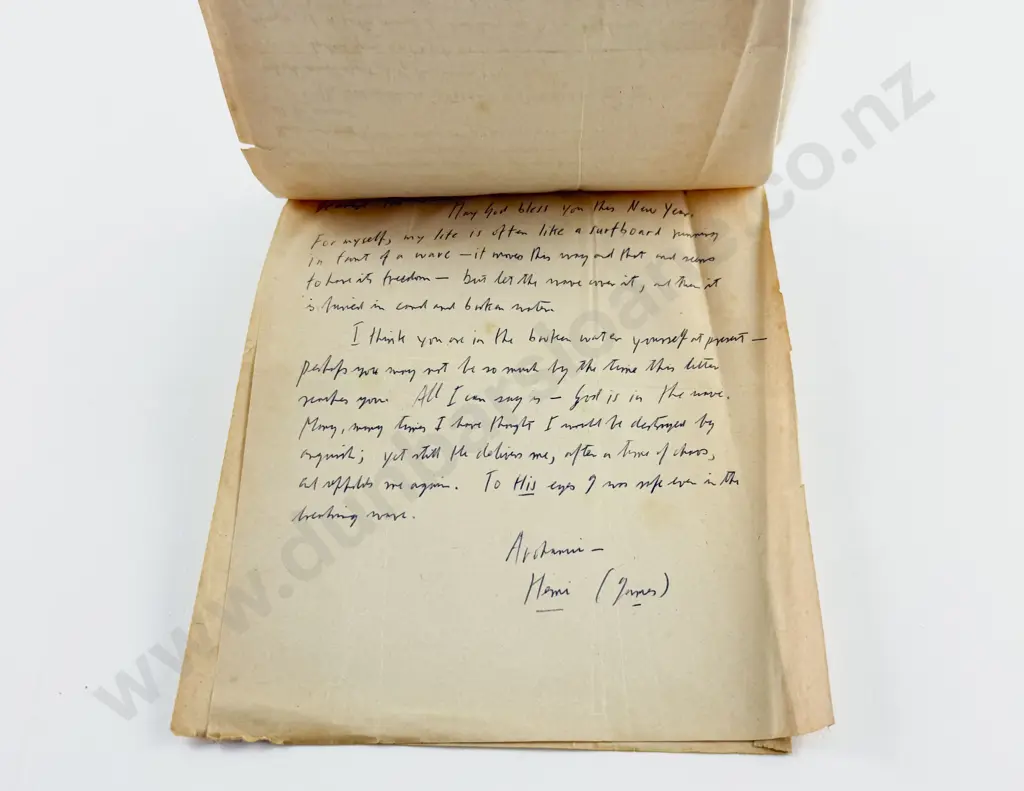 May God bless you this New Year.
For myself, my life is often like a surfboard running
in front of a wave – it moves this way and that and seems
to have its freedom – but let the wave cover it, and then it
is buried in sand and broken water.
I think you are in the broken water yourself at present –
perhaps you may not be so much by the time this letter
reaches you. All I can say is – God is in the wave.
Many, many times I have thought I would be destroyed by
anguish; yet still He delivers me, after a time of chaos,
and upholds me again. To His eyes I was safe even in the
breaking wave.
Arohanui –
Hemi (James)
www.dunbarsloane.co.nz